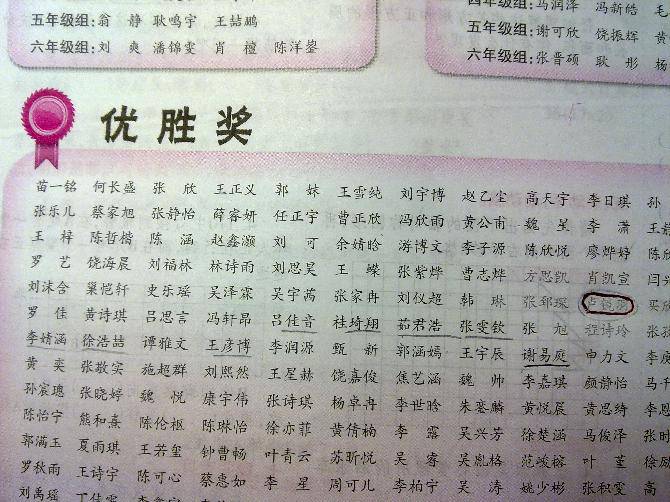 五年级组:翁 静 耿鸣宇 王喆鹏
六年级组:刘 爽 潘锦雯 肖 檀 陈洋鋆
四年级组:马润泽 冯新皓 毛
五年级组:谢可欣 饶振辉 黄
六年级组:张晋硕 耿 彤 杨
优胜奖
苗一铭 何长盛 张 欣 王正义 郭 姝 王雪纯 刘宇博 赵乙尘 高天宇 李日琪 孙
张乐儿 蔡家旭 张静怡 薛睿妍 任正宇 曹正欣 冯欣雨 黄公甫 魏 呈 李 潇 王
王 梓 陈哲楷 陈 涵 赵鑫灏 刘 可 余婧晗 游博文 李子源 陈欣悦 廖烨婷 陈
罗 艺 饶海晨 刘福林 林诗雨 刘思昊 王 嵘 张紫烨 曹志烨 方思凯 肖凯宣 闫
刘沫含 巢恺轩 史乐瑶 吴泽霖 吴宇菡 张家冉 刘仪超 韩 琳 张郅琛 买
罗 佳 黄诗琪 吕思言 冯轩昂 吕佳音 杜琦翔 茹君浩 张雯钦 张 旭 程诗玲 张
李婧涵 徐浩喆 谭雅文 王彦博 李润源 甄 新 郭涵嫣 王宇辰 谢易庭 申力文 李
黄 奕 张敬实 施超群 刘熙然 王星赫 饶嘉俊 焦艺涵 魏 帅 李嘉琪 颜静怡 马
孙宸璁 张晓婷 魏 悦 康宇伟 张诗琪 杨卓冉 李世晗 朱銮麟 黄悦晨 黄思绮 李
陈怡宁 熊和熹 陈伦枢 陈琳怡 徐亦菲 黄倩楠 李 露 吴兴芳 徐楚涵 马俊泽 张
郭满玉 夏雨琪 王若玺 钟曹畅 叶青云 苏昕悦 吴 睿 吴胤格 范峻榕 叶 堇 徐
罗秋雨 王诗宇 陈可心 蔡惠如 李 星 周可儿 李柏宁 吴 涛 姚少彬 张积雯 高
刘禹瑶 丁佳雯